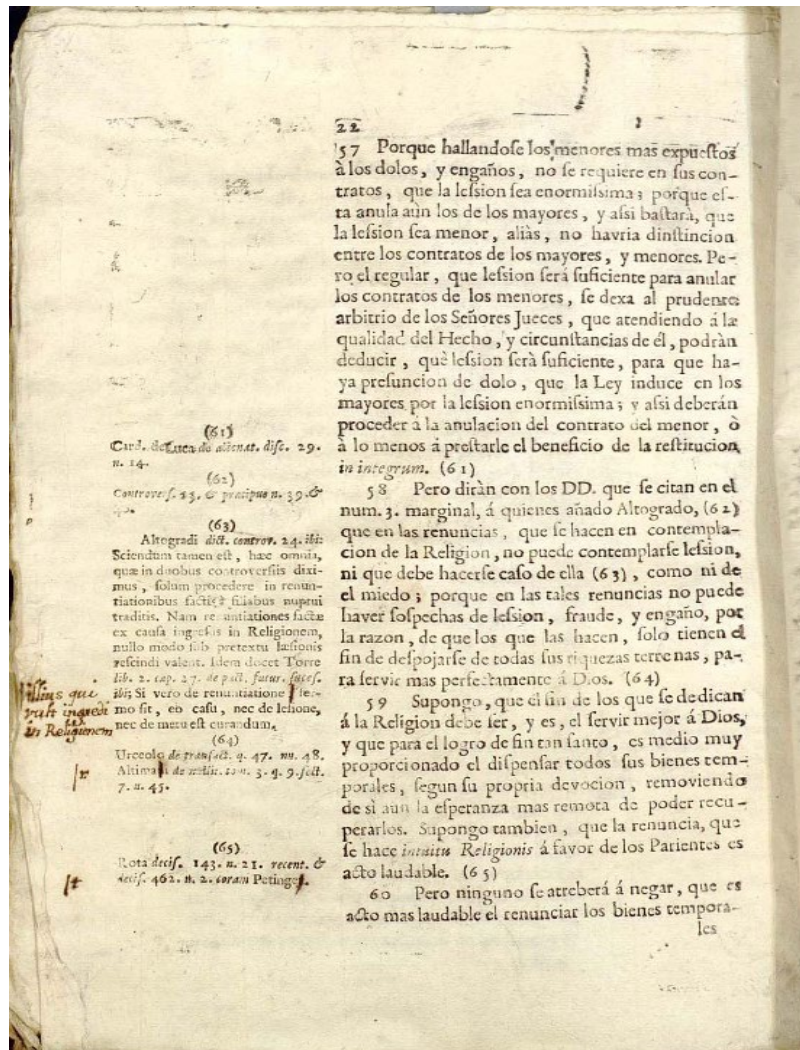 22
57 Porque hallandose los menores mas expuestos
à los dolos, y engaños, no se requiere en sus con-
tratos, que la lession sea enormissima; porque es-
ta anula aùn los de los mayores, y assi bastarà, que
la lession sea menor, aliàs, no havria dinstincion
entre los contratos de los mayores, y menores. Pe-
ro el regular, que lession serà suficiente para anular
los contratos de los menores, se dexa al prudente
arbitrio de los Señores Jueces, que atendiendo á la
qualidad del Hecho, y circunstancias de él, podràn
deducir, què lession serà suficiente, para que ha-
ya presuncion de dolo, que la Ley induce en los
mayores por la lession enormissima; y assi deberán
proceder á la anulacion del contrato del menor, ò
à lo menos á prestarle el beneficio de la restitucion
in integrum. (61)
58 Pero diràn con los DD. que se citan en el
num. 3. marginal, á quienes añado Altogrado, (62)
que en las renuncias, que se hacen en contempla-
cion de la Religion, no puede contemplarse lession,
ni que debe hacerse caso de ella (63), como ni de
el miedo; porque en las tales renuncias no puede
haver sospechas de lession, fraude, y engaño, por
la razon, de que los que las hacen, solo tienen el
fin de despojarse de todas sus riquezas terrenas, pa-
ra servir mas perfectamente á Dios. (64)
59 Supongo, que el fin de los que se dedican
á la Religion debe ser, y es, el servir mejor á Dios,
y que para el logro de fin tan santo, es medio muy
proporcionado el dispensar todos sus bienes tem-
porales, segun su propria devocion, removiendo
de sì aun la esperanza mas remota de poder recu-
perarlos. Supongo tambien, que la renuncia, que
se hace intuitu Religionis á favor de los Parientes es
acto laudable. (65)
60 Pero ninguno se atreberá á negar, que es
acto mas laudable el renunciar los bienes tempora-
les
(61)
Card. de Luca de alienat. disc. 29.
n. 14.
(62)
Controvers. 23. & præcipuè n. 39. &
(63)
Altogradi dict. controv. 24. ibi:
Sciendum tamen est, hæc omnia,
quæ in duobus controversiis dixi-
mus, solum procedere in renun-
tiationibus factis filiabus nuptui
traditis. Nam renuntiationes factæ
ex causa ingresus in Religionem,
nullo modo sub pretextu læsionis
rescindi valent. Idem docet Torre
lib. 2. cap. 27. de pact. futur. succes.
ibi: Si vero de renuntiatione ser-
mo sit, eo casu, nec de lesione,
nec de metu est curandum.
illius qui
vult ingredi
in Religionem
(64)
Urceolo de transact. q. 47. nu. 48.
Altima de nulit. tom. 3. q. 9. sect.
7. n. 45.
(65)
Rota decis. 143. n. 21. recent. &
decis. 462. n. 2. coram